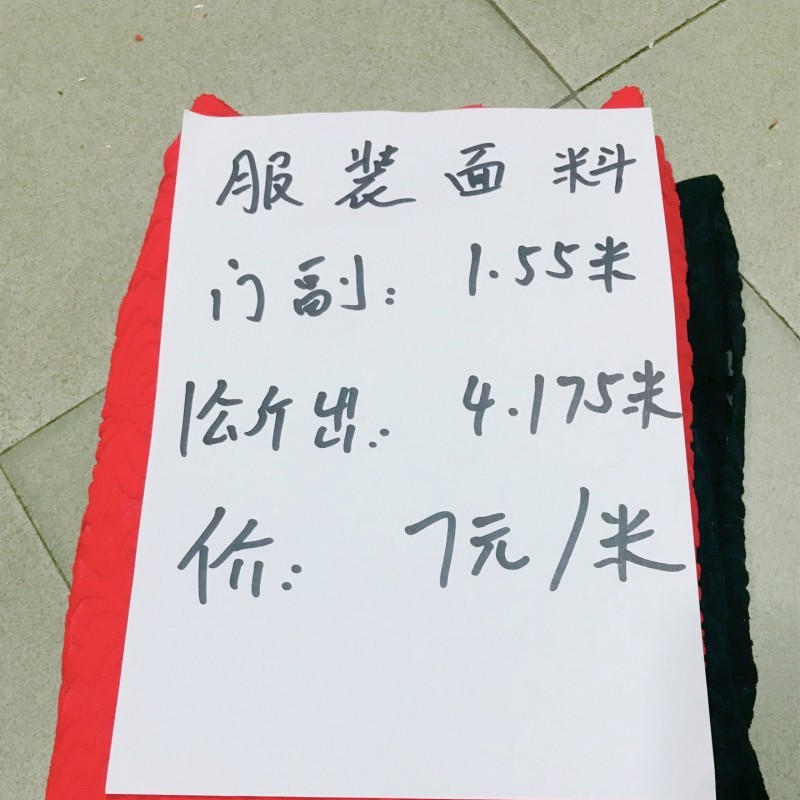 服装面料
门副: 1.55米
1公斤出: 4.175米
价: 7元/米